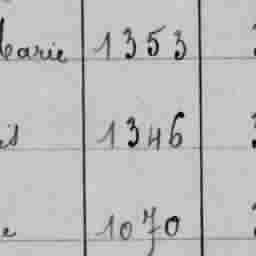 Marie 1353
1346
1070